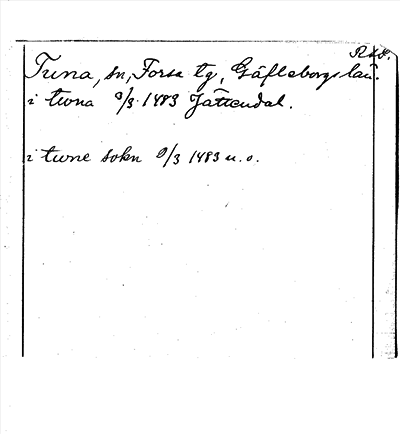 Tuna, sn, Forsa tg, Gäfleborgs län.
i twna 9/3 1483 Jättendal.
i twne sokn 9/3 1483 u. o.